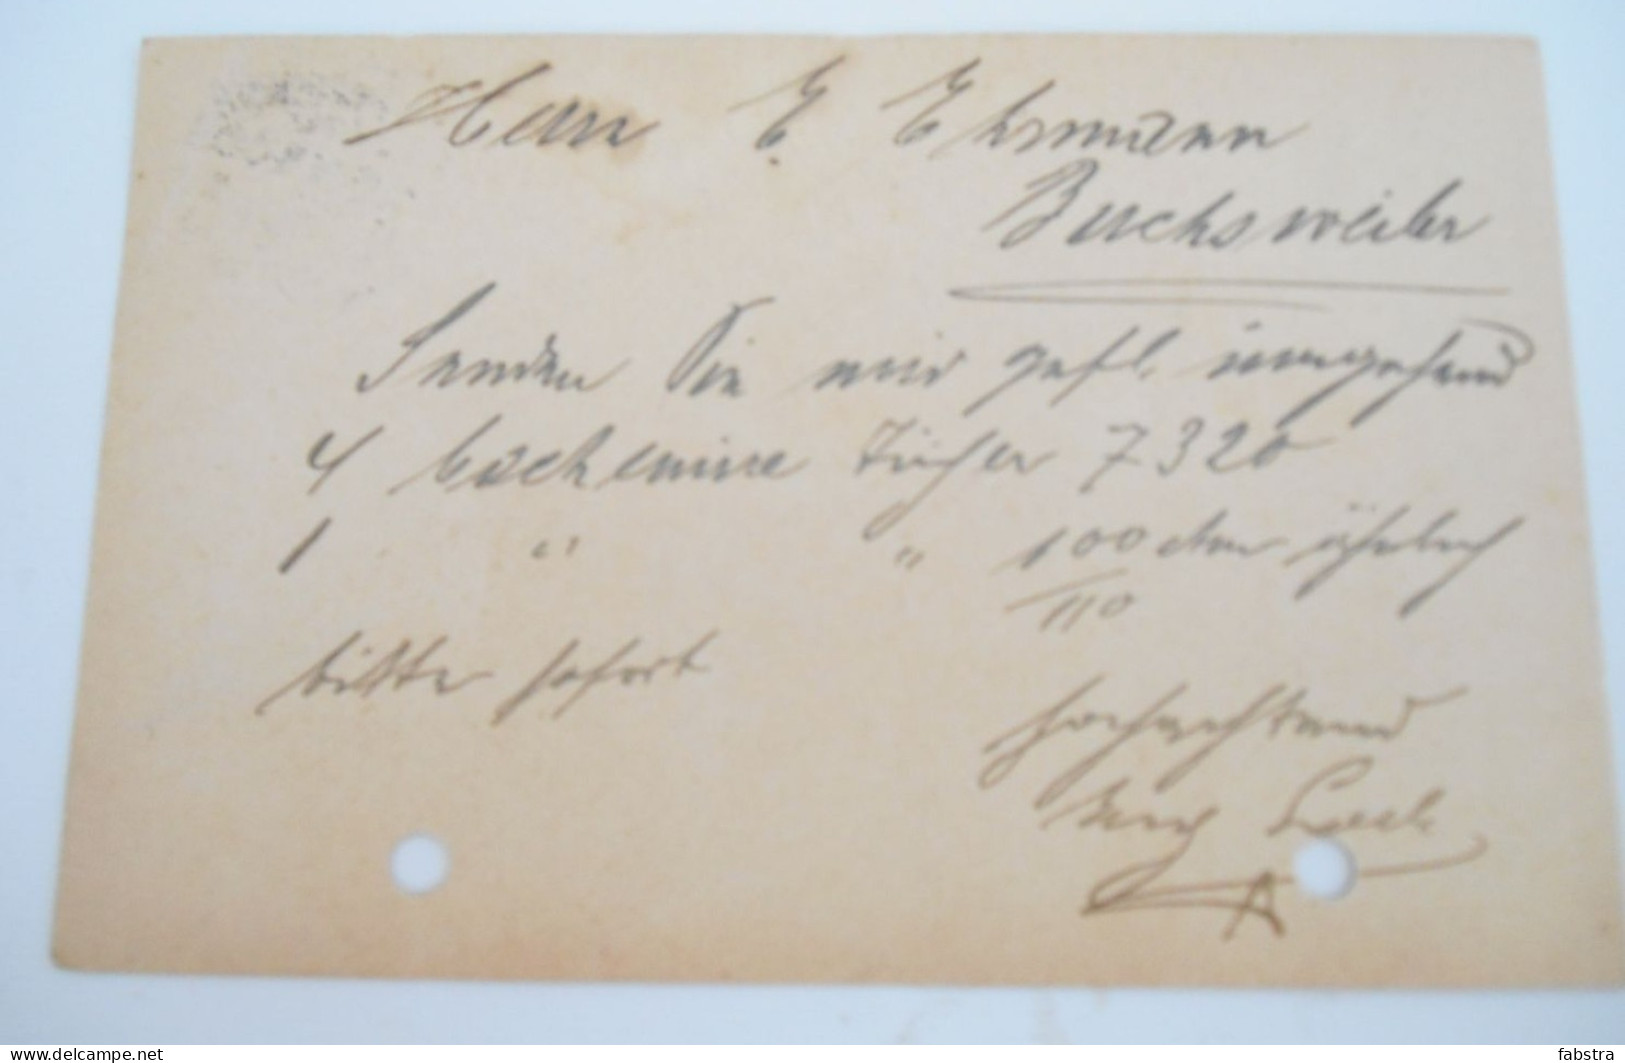 Herrn E. Ehrmann
Buchsweiler
Senden Sie mir gefl. umgehend
4 Cachemire Tücher 7320
1 " " 100 ctm
110
bitte sofort
hochachtend
www.delcampe.net
fabstra